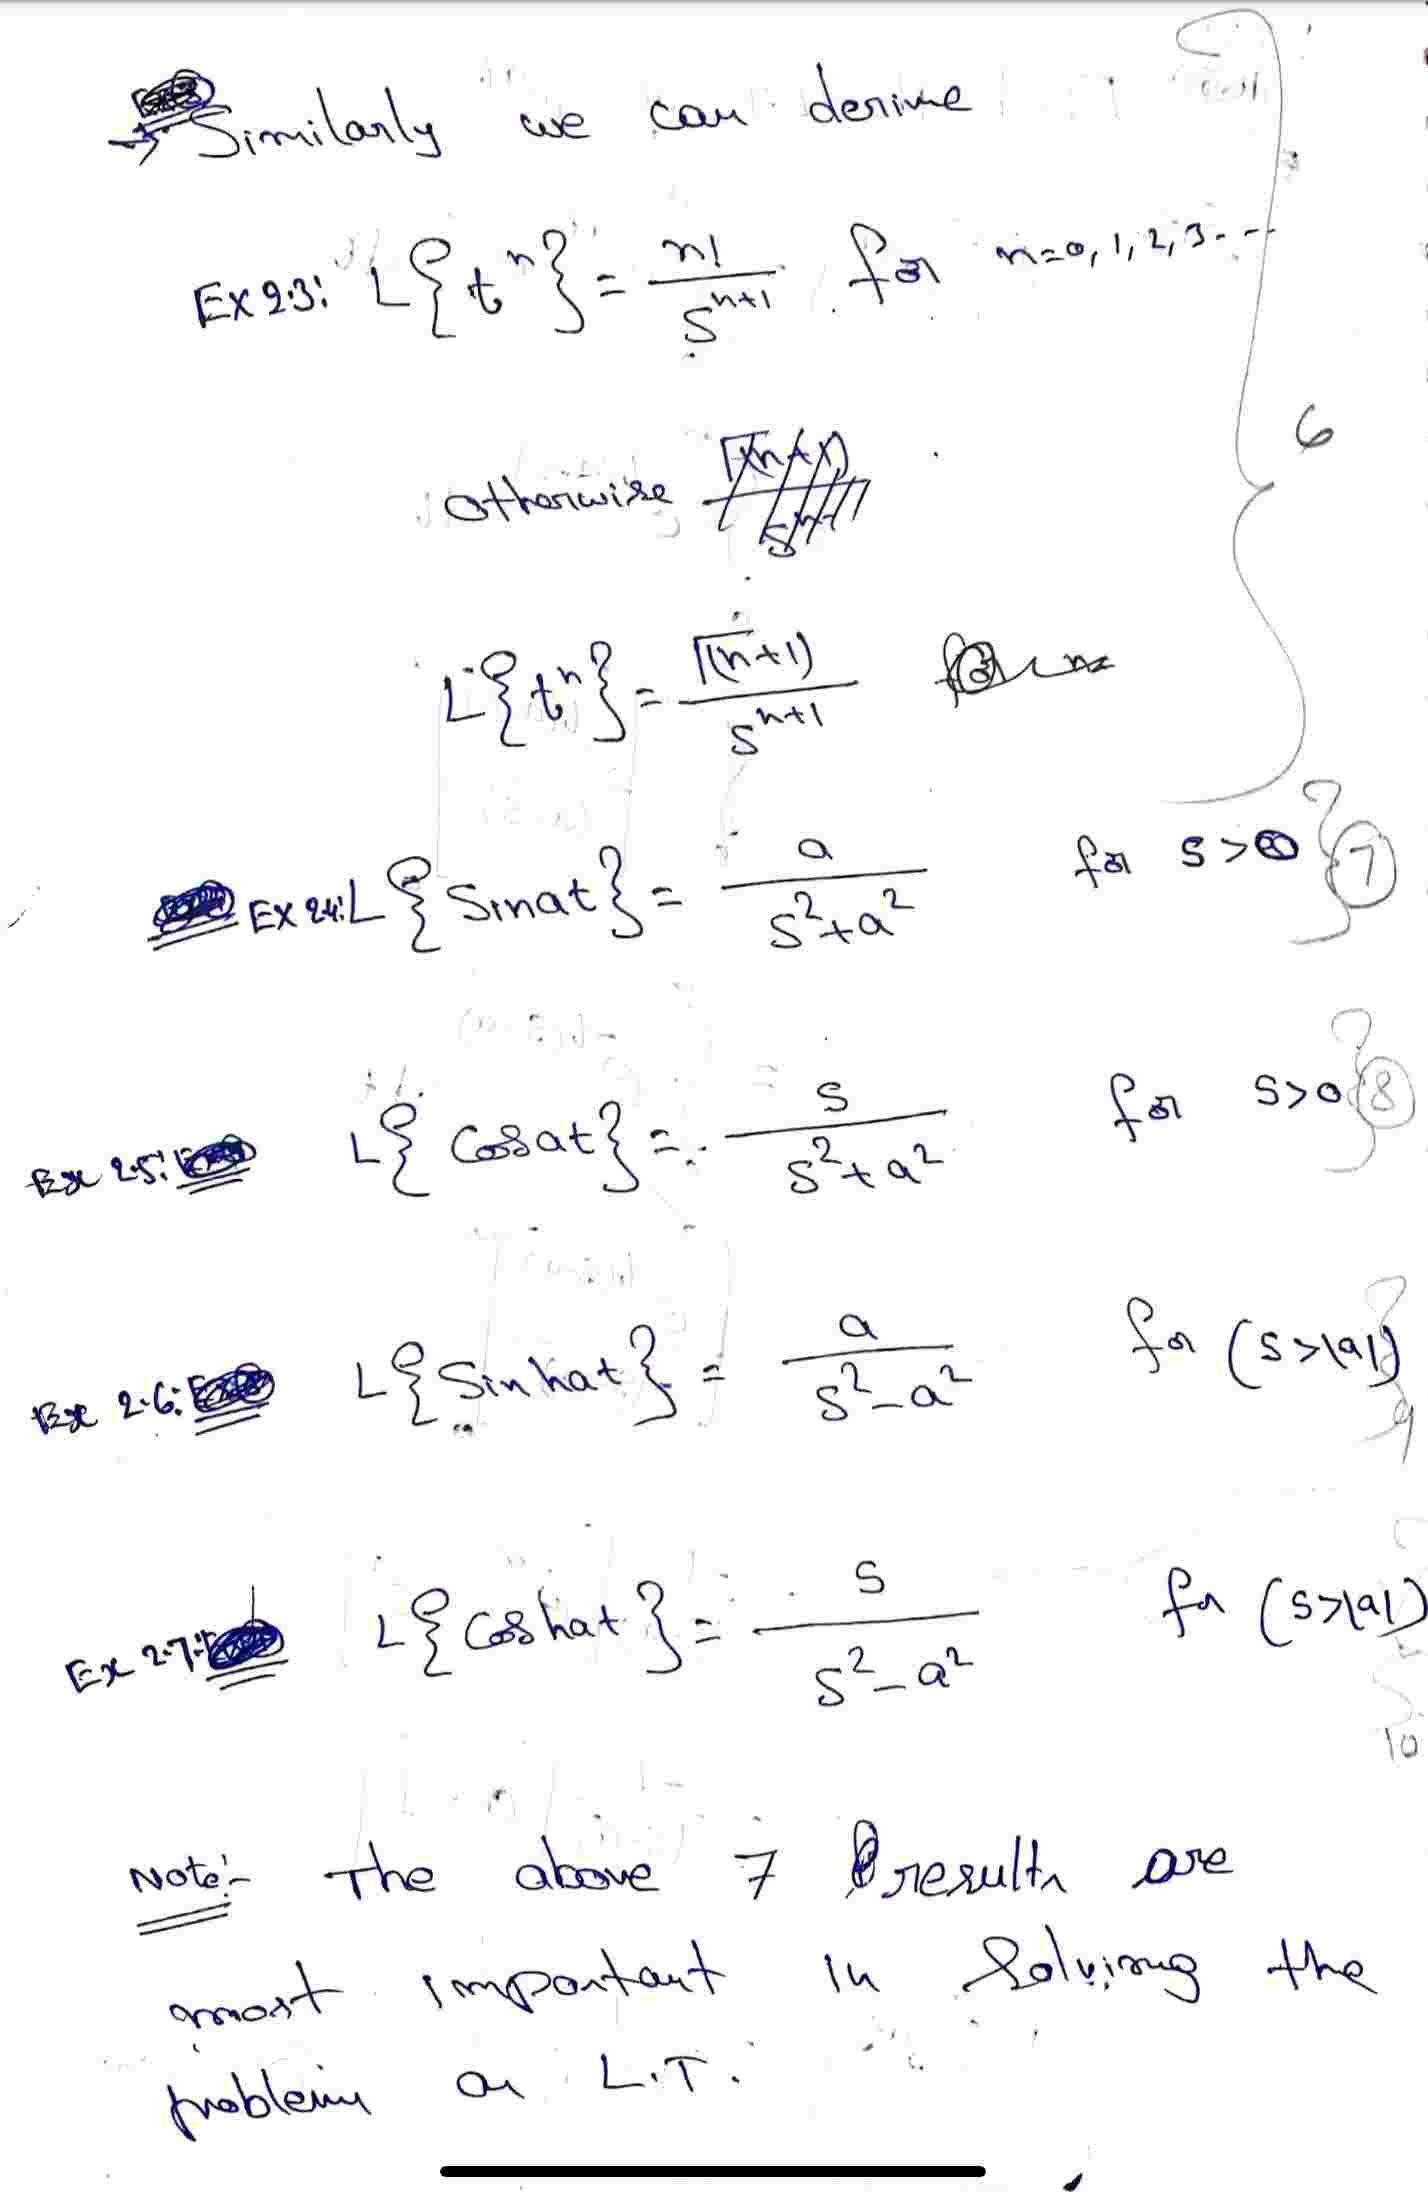 → Similarly we can derive
Ex 2.3: L{t^n} = n!/s^{n+1} for n=0,1,2,3---
6
otherwise
L{t^n} = Γ(n+1)/s^{n+1}
Ex 2.4: L{Sinat} = a/(s²+a²) for s>0 } 7
Ex 2.5: L{Cosat} = s/(s²+a²) for s>0 } 8
Ex 2.6: L{Sinhat} = a/(s²-a²) for (s>|a|) } 9
Ex 2.7: L{Coshat} = s/(s²-a²) for (s>|a|)
10
Note:- The above 7 results are
most important in Solving the
problems on L.T.